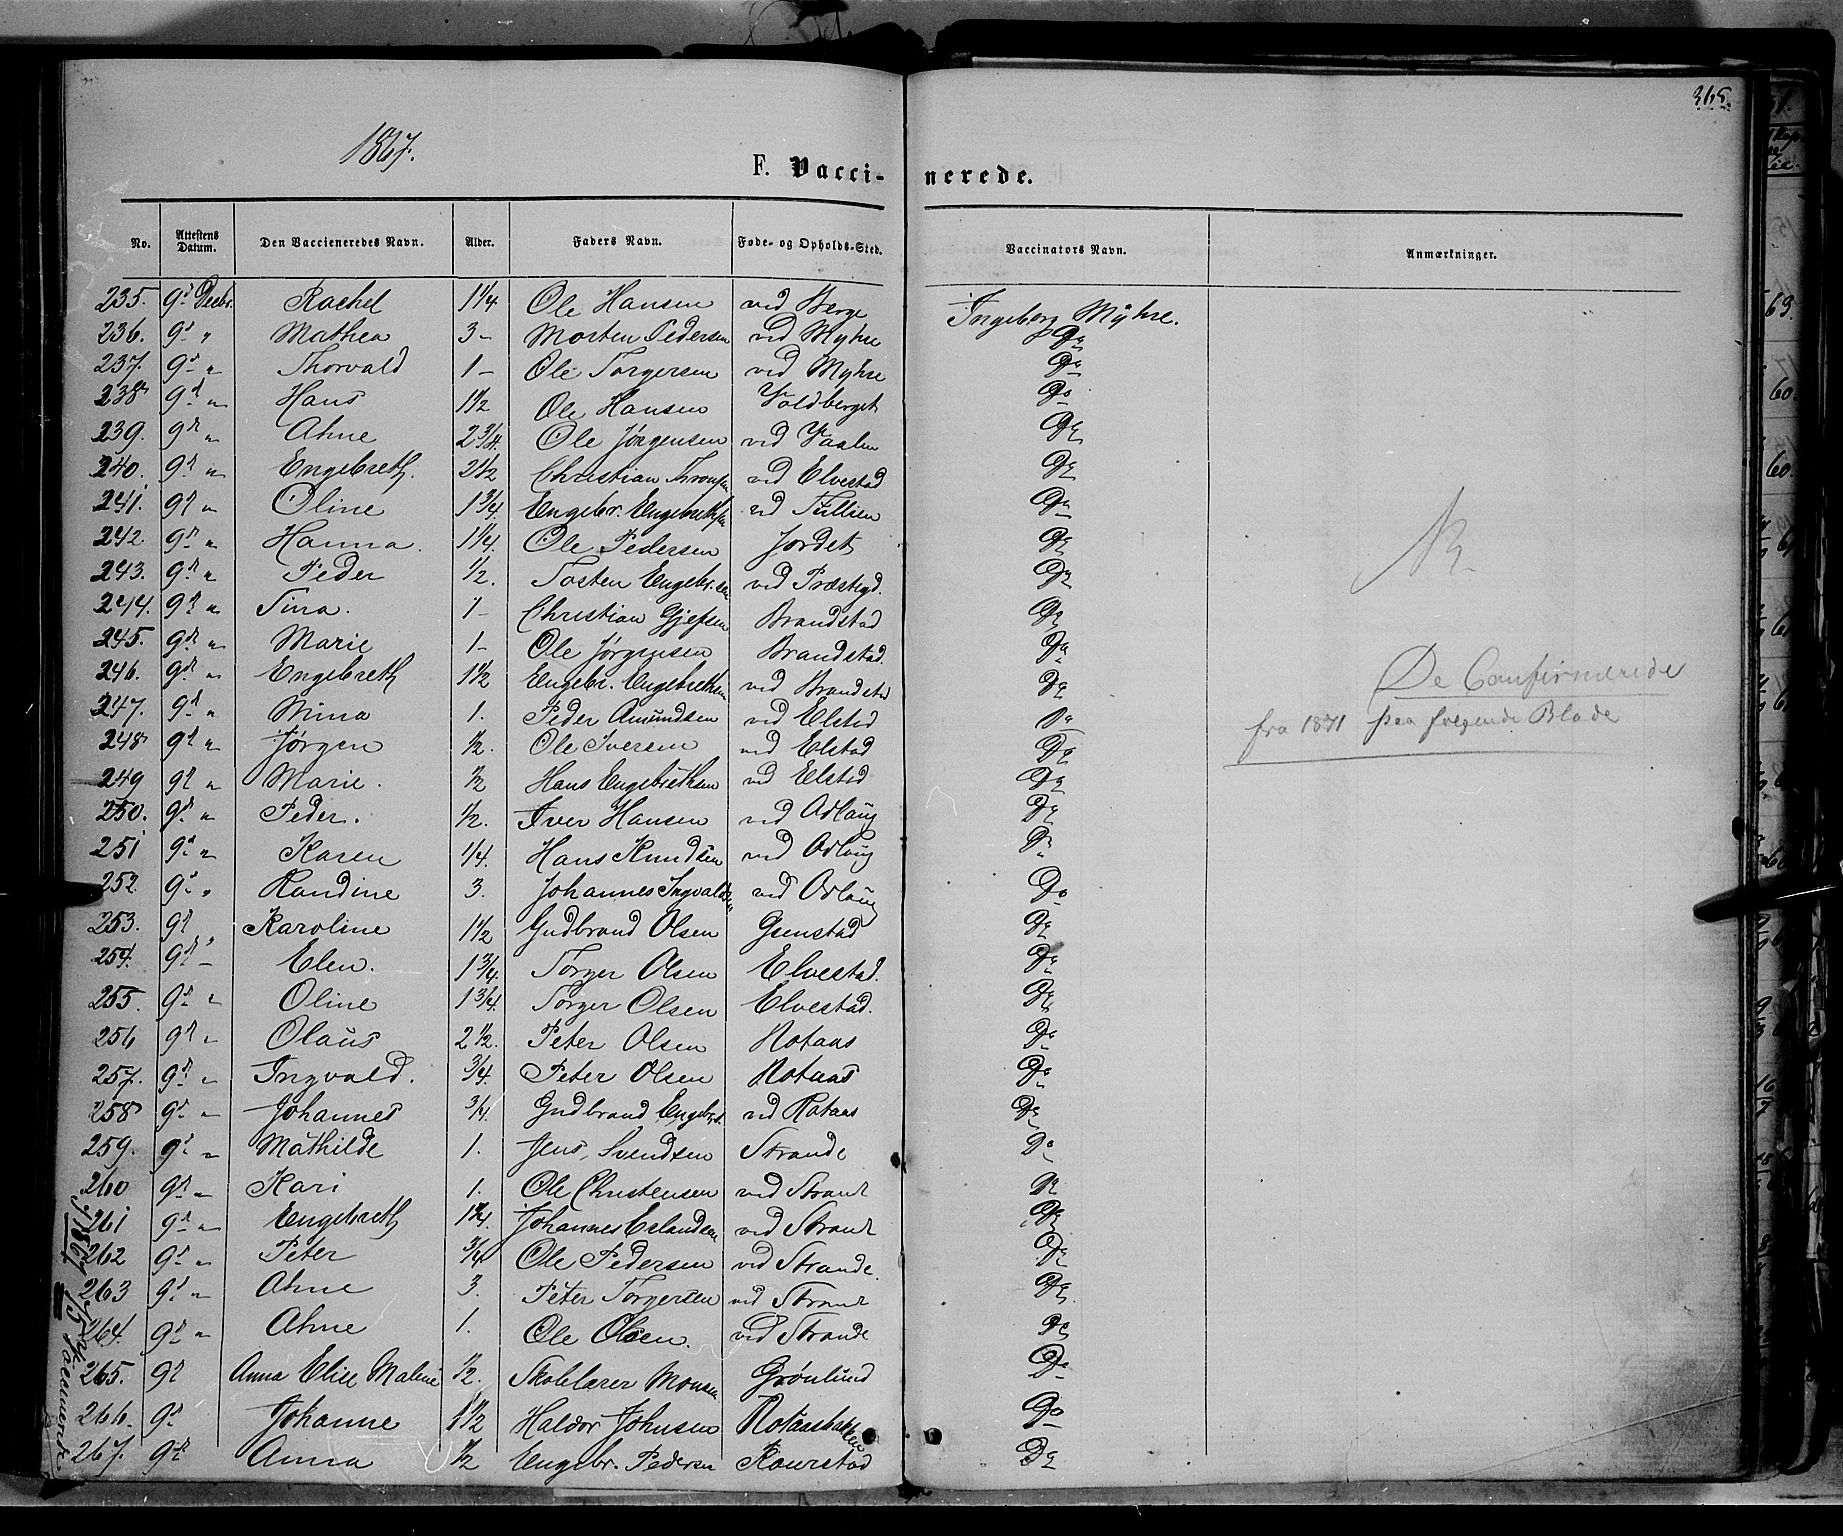 365.
1867.
F. Vacci- nerede.
No. Attestens Datum. Den Vaccieneredes Navn. Alder. Faders Navn. Føde- og Opholds-Sted. Vaccinators Navn. Anmærkninger.
235. 9d Decbr. Rachel 1 1/4 Ole Hansen ved Berge Ingeborg Myhre.
236. 9d " Mathea 3 - Morten Pedersen ved Myhre Do
237. 9d " Thorvald 1 - Ole Torgersen ved Myhre Do
238 9d " Hans 1 1/2 Ole Hansen Voldberget Do
239. 9d " Ahne 2 3/4. Ole Jørgensen ved Vaalen Do
240. 9d " Engebreth. 2 1/2 Christian Thronsen ved Elvestad Do
241. 9d " Oline 1 3/4. Engebr. Engebrethsen vd Tullien Do
242. 9d " Hanna. 1 1/4. Ole Pedersen Jordet Do
243. 9d " Peder 1/2. Tosten Engebr.sen ved Præstegd. Do
244. 9d " Tina. 1 - Christian Gjefsen Brandstad Do
245. 9d " Marie 1 - Ole Jørgensen Brandstad. Do
246. 9d " Engebreth 1 1/2 Engebr. Engebrethsen ved Brandstad Do
De Confirmerede
247. 9d " Mina 1. Peder Amundsen ved Elstad Do
fra 1871 paa følgende Blade
248 9d " Jørgen 1/2. Ole Iversen ved Elstad Do
249 9d " Marie. 1/2 Hans Engebrethsen ved Elstad Do
250. 9d " Peder. 1/2. Iver Hansen ved Odloug Do
251 9d " Karen 1/4. Hans Knudsen ved Odloug Do
252. 9d " Randine 3. Johannes Ingvaldsen ved Odloug Do
253. 9d " Karoline 1 1/2 Gudbrand Olsen Gsenstad Do
254. 9d - Elen. 1 3/4. Torger Olsen Elvestad. Do
255. 9d " Oline 1 3/4. Torger Olsen Elvestad. Do
256 9d " Olaus 2 1/2. Peter Olsen Rotaas Do
257. 9d " Ingvald. 3/4. Peter Olsen Rotaas Do
258 9d " Johannes 3/4. Gudbrand Engebr.s. vd Rotaas Do
259. 9d " Mathilde 1. Jens Svendsen Strande Do
260 9d " Kari 1. Ole Christensen ved Strand Do
261 9d " Engebreth 1 1/4. Johannes Erlandsen ved Strand Do
262 9d " Peter 3/4 Ole Pedersen ved Strande. Do
263 9d " Ahne 3. Peter Torgersen ved Strand Do
264. 9d " Ahne 1. Ole Olsen. ved Strande Do
265. 9d Anna Elise Maline 1/2. Skolelærer Monsen Grønlund Do
266. 9d Johanne 1 1/2 Haldor Johnsen Rotaasbakken Do
267. 9d Anna 1/2 Engebr. Pedersen Kourstad Do